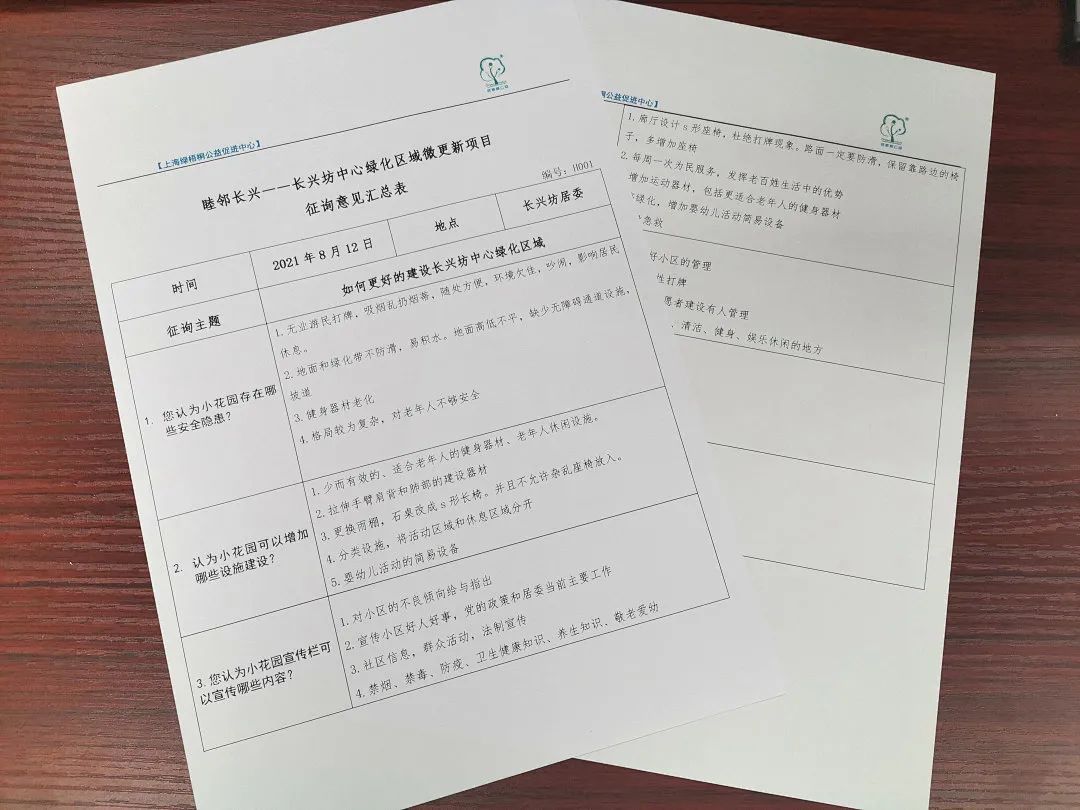 【上海绿梧桐公益促进中心】
睦邻长兴——长兴坊中心绿化区域微更新项目
征询意见汇总表
编号：H001
时间
2021 年 8 月 12 日
地点
长兴坊居委
征询主题
如何更好的建设长兴坊中心绿化区域
1. 您认为小花园存在哪
些安全隐患？
1. 无业游民打牌，吸烟乱扔烟蒂，随处方便，环境欠佳，吵闹，影响居民
休息。
2. 地面和绿化带不防滑，易积水。地面高低不平，缺少无障碍通道设施，
坡道
3. 健身器材老化
4. 格局较为复杂，对老年人不够安全
2. 认为小花园可以增加
哪些设施建设？
1. 少而有效的、适合老年人的健身器材、老年人休闲设施。
2. 拉伸手臂肩背和肺部的建设器材
3. 更换雨棚，石桌改成 s 形长椅。并且不允许杂乱座椅放入。
4. 分类设施，将活动区域和休息区域分开
5. 婴幼儿活动的简易设备
3. 您认为小花园宣传栏可
以宣传哪些内容？
1. 对小区的不良倾向给与指出
2. 宣传小区好人好事，党的政策和居委当前主要工作
3. 社区信息，群众活动，法制宣传
4. 禁烟、禁毒、防疫、卫生健康知识、养生知识、敬老爱幼
公益促进中心】
1. 廊厅设计 s 形座椅，杜绝打牌现象。路面一定要防滑，保留靠路边的椅
子，多增加座椅
2. 每周一次为民服务，发挥老百姓生活中的优势
增加运动器材，包括更适合老年人的健身器材
绿化，增加婴幼儿活动简易设备
急救
好小区的管理
性打牌
愿者建设有人管理
、清洁、健身、娱乐休闲的地方